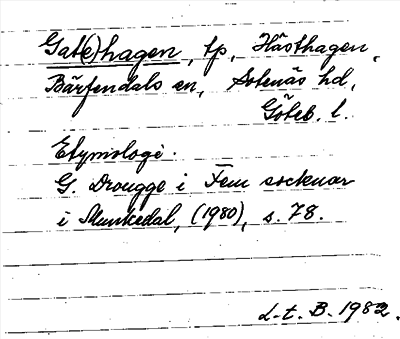 Gat(e)hagen, tp, Hästhagen,
Bärfendals sn, Sotenäs hd,
Göteb. l.
Etymologi.
G. Drougge i Fem socknar
i Munkedal, (1980), s. 78.
L-t. B. 1982.